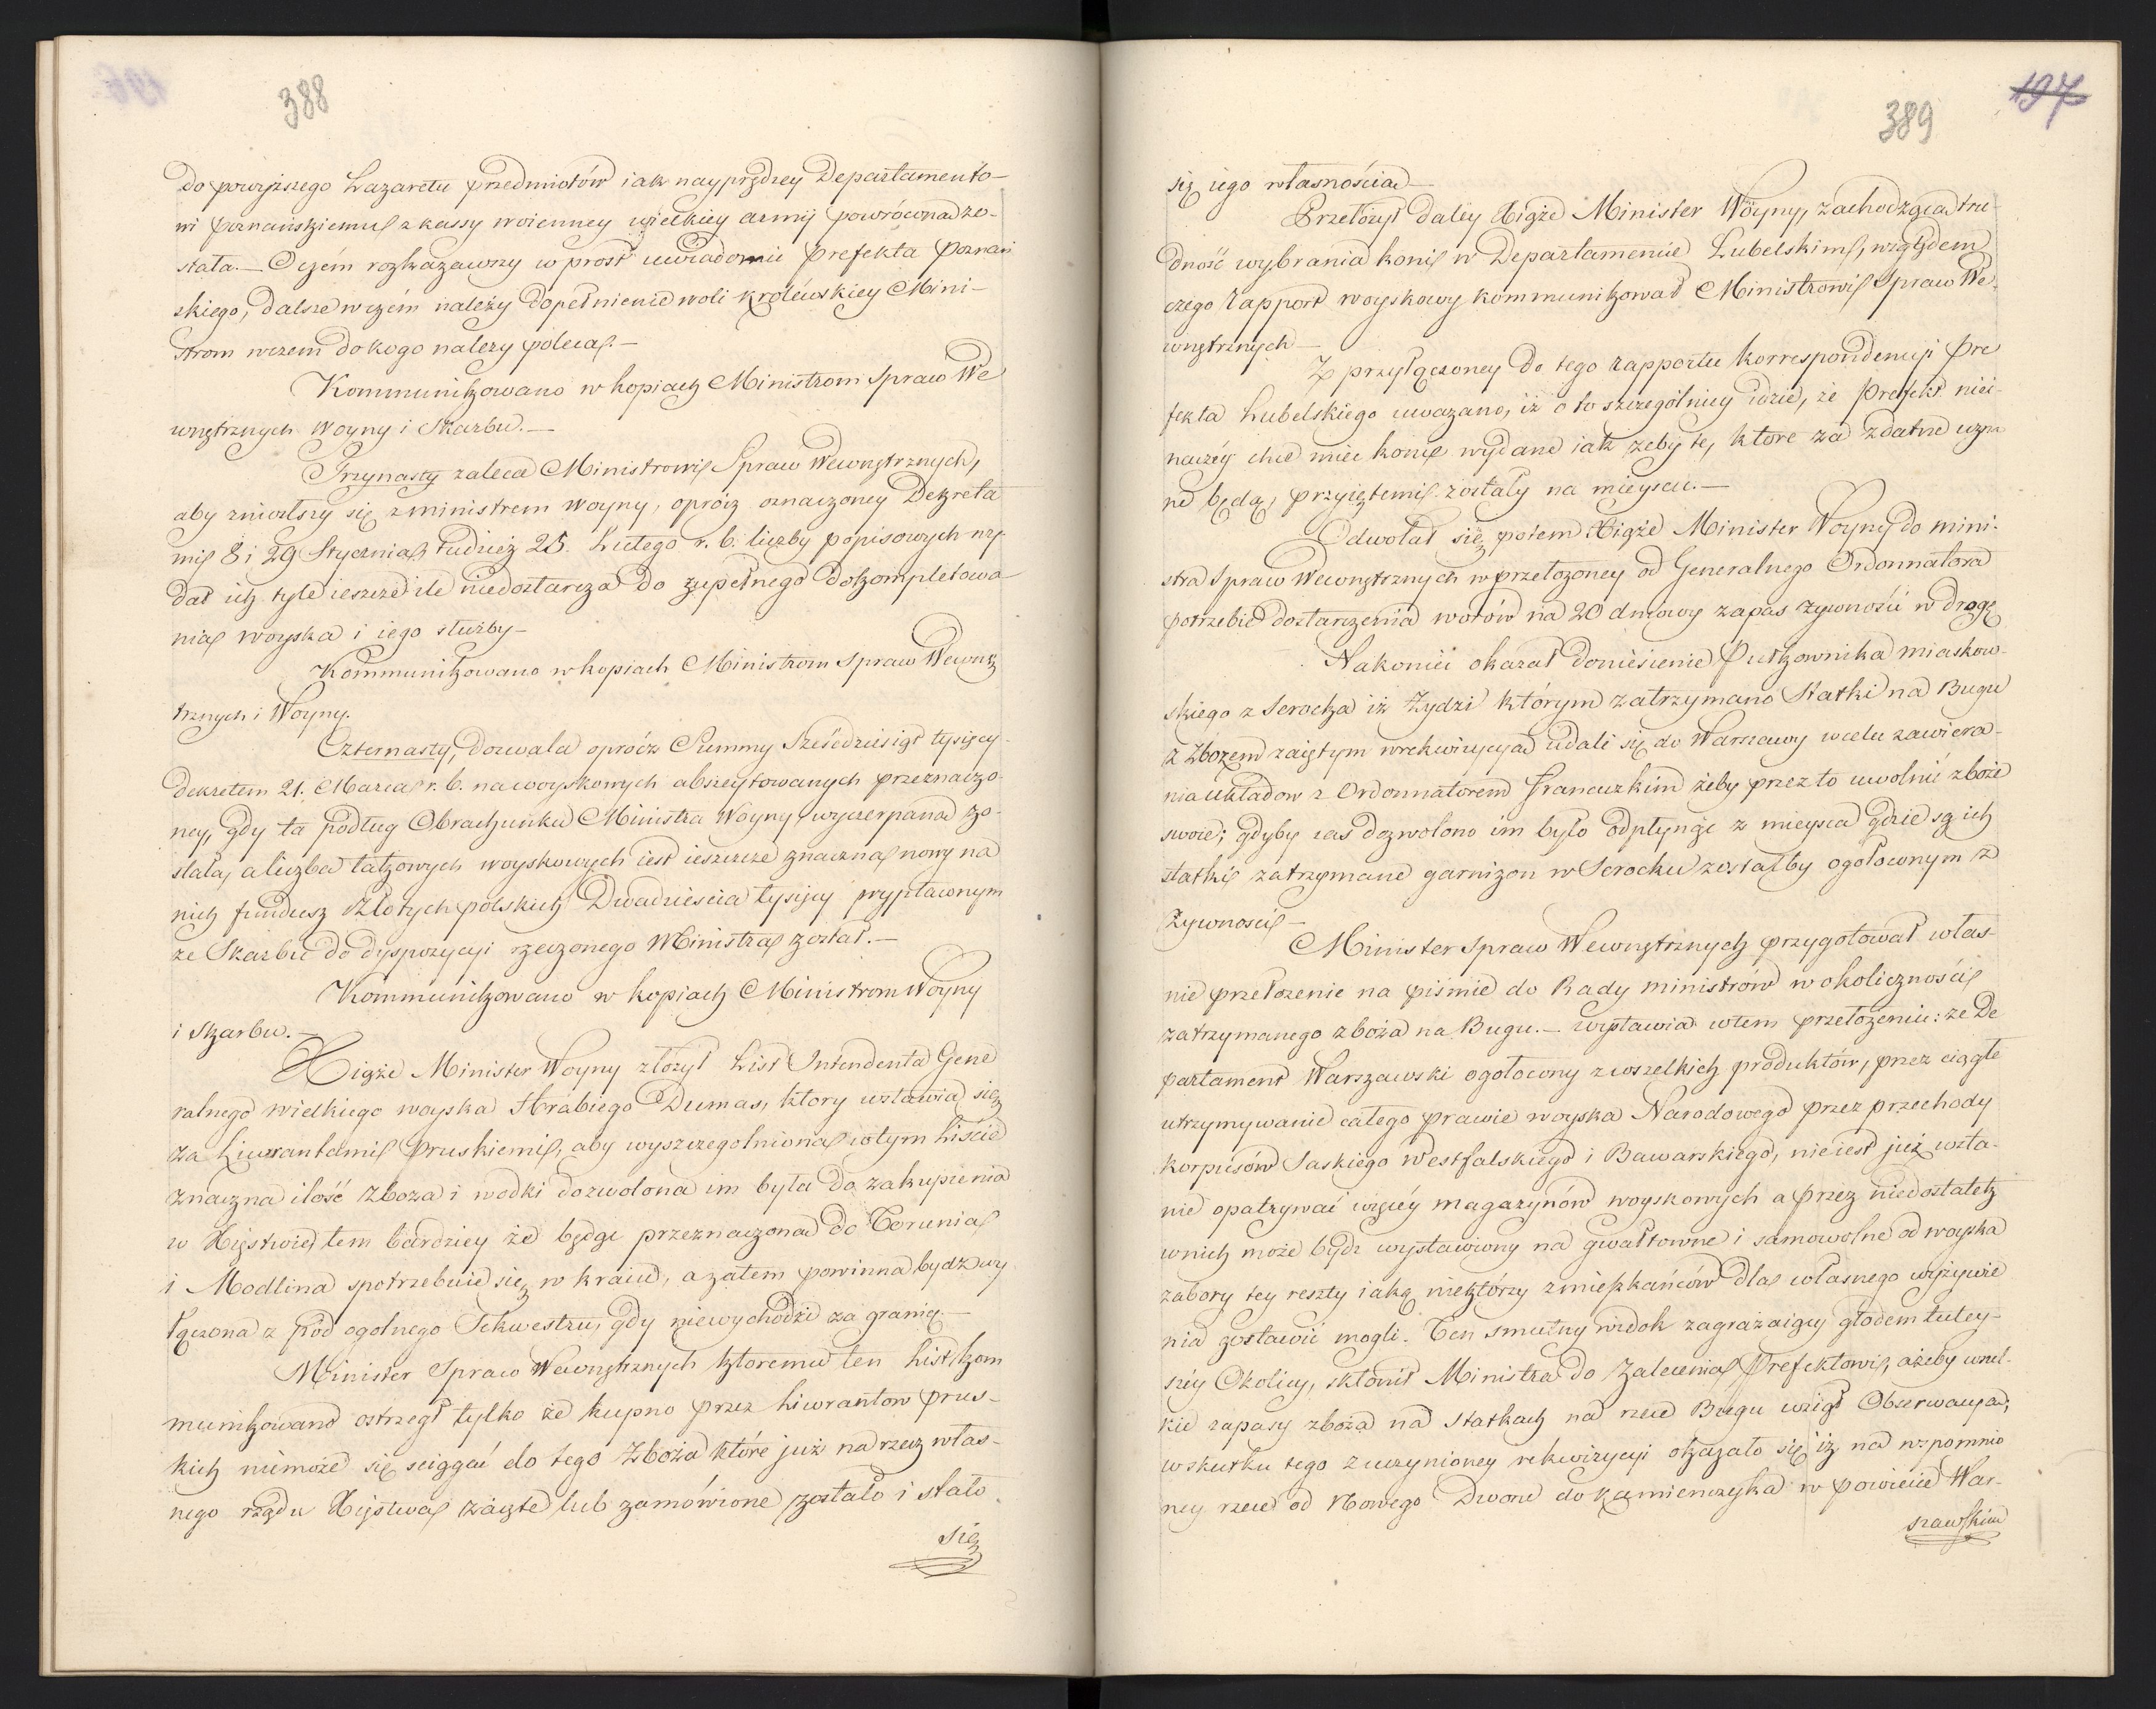 388
do powyższego Lazaretu przedmiotów iak nayprędzey Departamento-
wi poznańskiemu z kassy woienney wielkiey armij powrócona zo-
stała. — O czém rozkazawszy w prost uwiadomić Prefekta Poznań
skiego, dalsze w czém należy dopełnienie woli królewskiey Mini-
strom wczem do kogo należy poleca. —
Kommunikowano w kopiach Ministrom Spraw We
wnętrznych Woyny i Skarbu. —
Trzynasty zaleca Ministrowi Spraw Wewnętrznych,
aby zniosłszy się z ministrem woyny, oprócz oznaczoney Dekreta
mi 8 i 29 Stycznia, tudzież 25. Lutego r. b. liczby popisowych wy
dał ich tyle ieszcze ile niedostarcza do zupełnego dokompletowa-
nia woyska i iego służby —
Kommunikowano w kopiach Ministrom Spraw Wewnę
trznych i Woyny.
Czternasty, dozwala oprócz Summy Sześćdziesiąt tysięcy
dekretem 21. Marca r. b. na woyskowych abszeytowanych przeznaczo-
ney, gdy ta podług Obrachunku Ministra Woyny wyczerpana zo-
stała, a liczba takowych woyskowych iest ieszcze znaczna, nowy na
nich fundusz Złotych polskich Dwadzieścia tysięcy wypłaconym
ze Skarbu do dyspozycyi rzeczonego Ministra został. —
Kommunikowano w kopiach Ministrom Woyny
i Skarbu. —
Xiąże Minister Woyny złożył List Intendenta Gene
ralnego wielkiego woyska Hrabiego Dumas, ktory wstawia się
za Liwrantami Pruskiemi, aby wyszczegolniona w tym Liście
znaczna ilość zboża i wodki dozwolona im była do zakupienia
w Xięstwie, tem bardziey że będąc przeznaczona do Torunia
i Modlina spotrzebuie się w kraiu, a zatem powinna bydź wy
łączona z pod ogolnego Sekwestru, gdy niewychodzi za granicę. —
Minister Spraw Wewnętrznych ktoremu ten List kom
munikowano ostrzegł tylko że kupno przez Liwrantow prus-
kich niemoże się sciągać do tego zboża które już na rzecz włas-
nego rządu Xięstwa zaięte lub zamówione zostało i stało
się
197
389
się iego własnością —
Przełożył daléy Xiąże Minister Woyny, zachodzącą tru-
dność wybrania koni w Departamencie Lubelskim, względem
czego rapport woyskowy kommunikował Ministrowi Spraw We-
wnętrznych —
Z przyłączoney do tego rapportu korrespondencyi Pre
fekta Lubelskiego uważano, iż o to szczególniey idzie, że Prefekt niei-
naczey chce mieć konie wydane iak żeby te, ktore za zdatne uzna
ne będą, przyiętemi zostały na mieyscu. —
Odwołał się potem Xiąże Minister Woyny do mini-
stra Spraw Wewnętrznych w przełożoney od Generalnego Ordonnatora
potrzebie dostarczenia worów na 20 dniowy zapas żywności w drogę
Nakoniec okazał doniesienie Pułkownika Miaskow-
skiego z Serocka iż Żydzi którym zatrzymano Statki na Bugu
z zbożem zaiętym wrekwizycyą udali się do Warszawy w celu zawiera-
nia układow z Ordonnatorem francuzkim żeby przez to uwolnić zboże
swoie; gdyby zas dozwolono im było odpłynąć z mieysca gdzie są ich
statki zatrzymane garnizon w Serocku zostałby ogołoconym z
żywnosci —
Minister Spraw Wewnętrznych przygotował włas-
nie przełożenie na piśmie do Rady ministrów w okoliczności
zatrzymanego zboża na Bugu. — wystawia wtem przełożeniu: że De
partament Warszawski ogołocony z wszelkich produktów, przez ciągłe
utrzymywanie całego prawie woyska Narodowego przez przechody
korpusów Saskiego Westfalskiego i Bawarskiego, nieiest już w sta-
nie opatrywać więcéy magazynów woyskowych a przez niedostatek
wnich może bydz wystawiony na gwałtowne i samowolne od woyska
zabory tey reszty iaką niektórzy z mieszkańców dla własnego wyżywie
nia zostawić mogli. Ten smutny widok zagrażaiący głodem tutey-
széy Okolicy, skłonił Ministra do zalecenia Prefektowi, ażeby wszel-
kie zapasy zboża na statkach na rzece Bugu wziął Obserwacyą,
wskutku tego zuczynioney rekwizycyi okazało się iż na wspomnio
ney rzece od Nowego Dworu do Kamienczyka w powiecie War-
szawskim